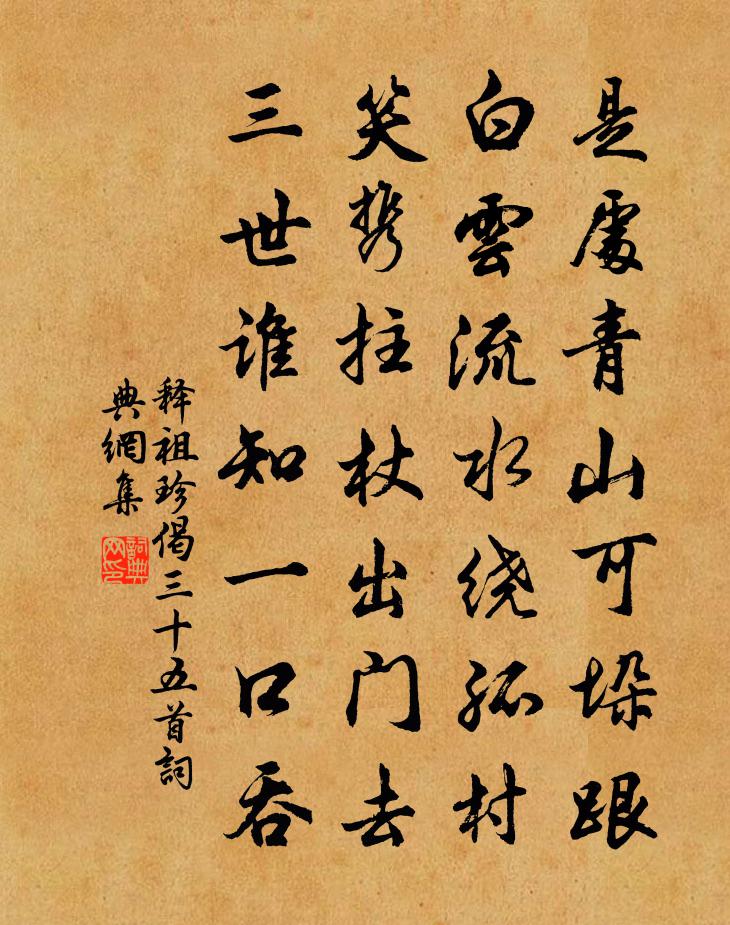 是處青山可垛跟
白雲流水绕孤村
笑携拄杖出門去
三世谁知一口吞
释祖珍偈三十五首詞
典網集
詞典
网印